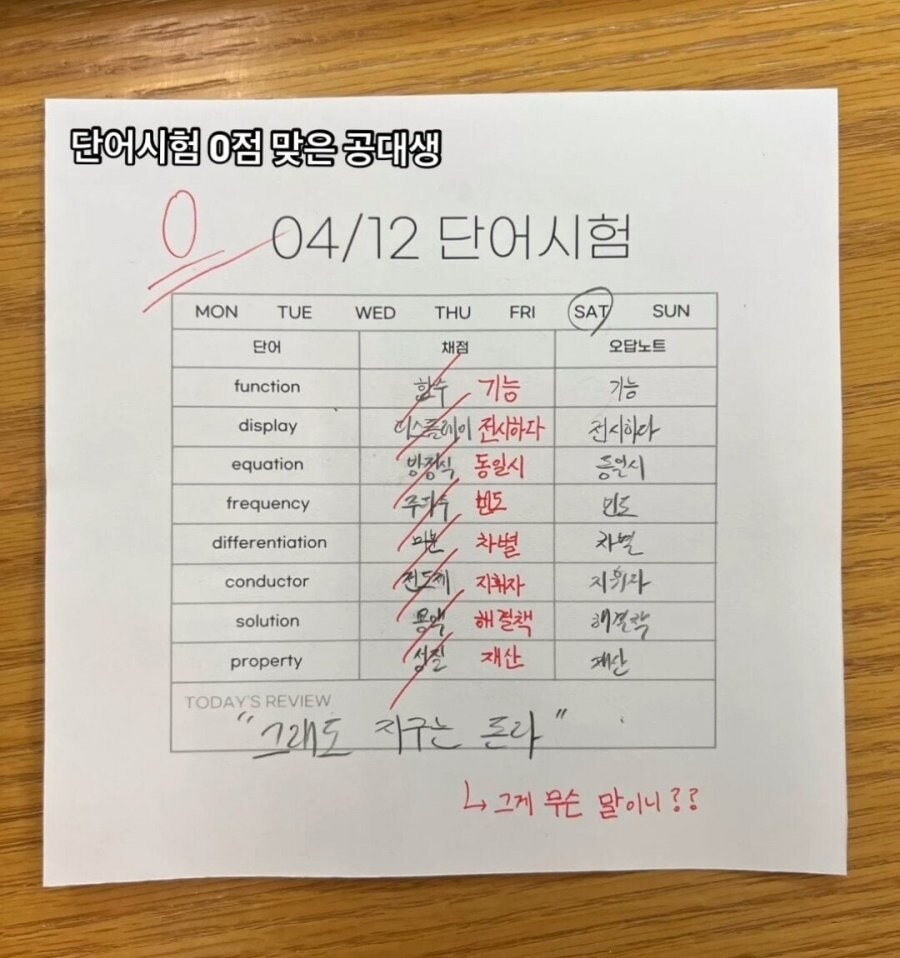 단어시험 0점 맞은 공대생
0
04/12 단어시험
MON TUE WED THU FRI SAT SUN
단어 채점 오답노트
function 함수 기능 기능
display 디스플레이 전시하다 전시하다
equation 방정식 동일시 동일시
frequency 주파수 빈도 빈도
differentiation 미분 차별 차별
conductor 전도체 지휘자 지휘자
solution 용액 해결책 해결책
property 성질 재산 재산
TODAY'S REVIEW
"그래도 지구는 돈다"
↳ 그게 무슨 말이니??